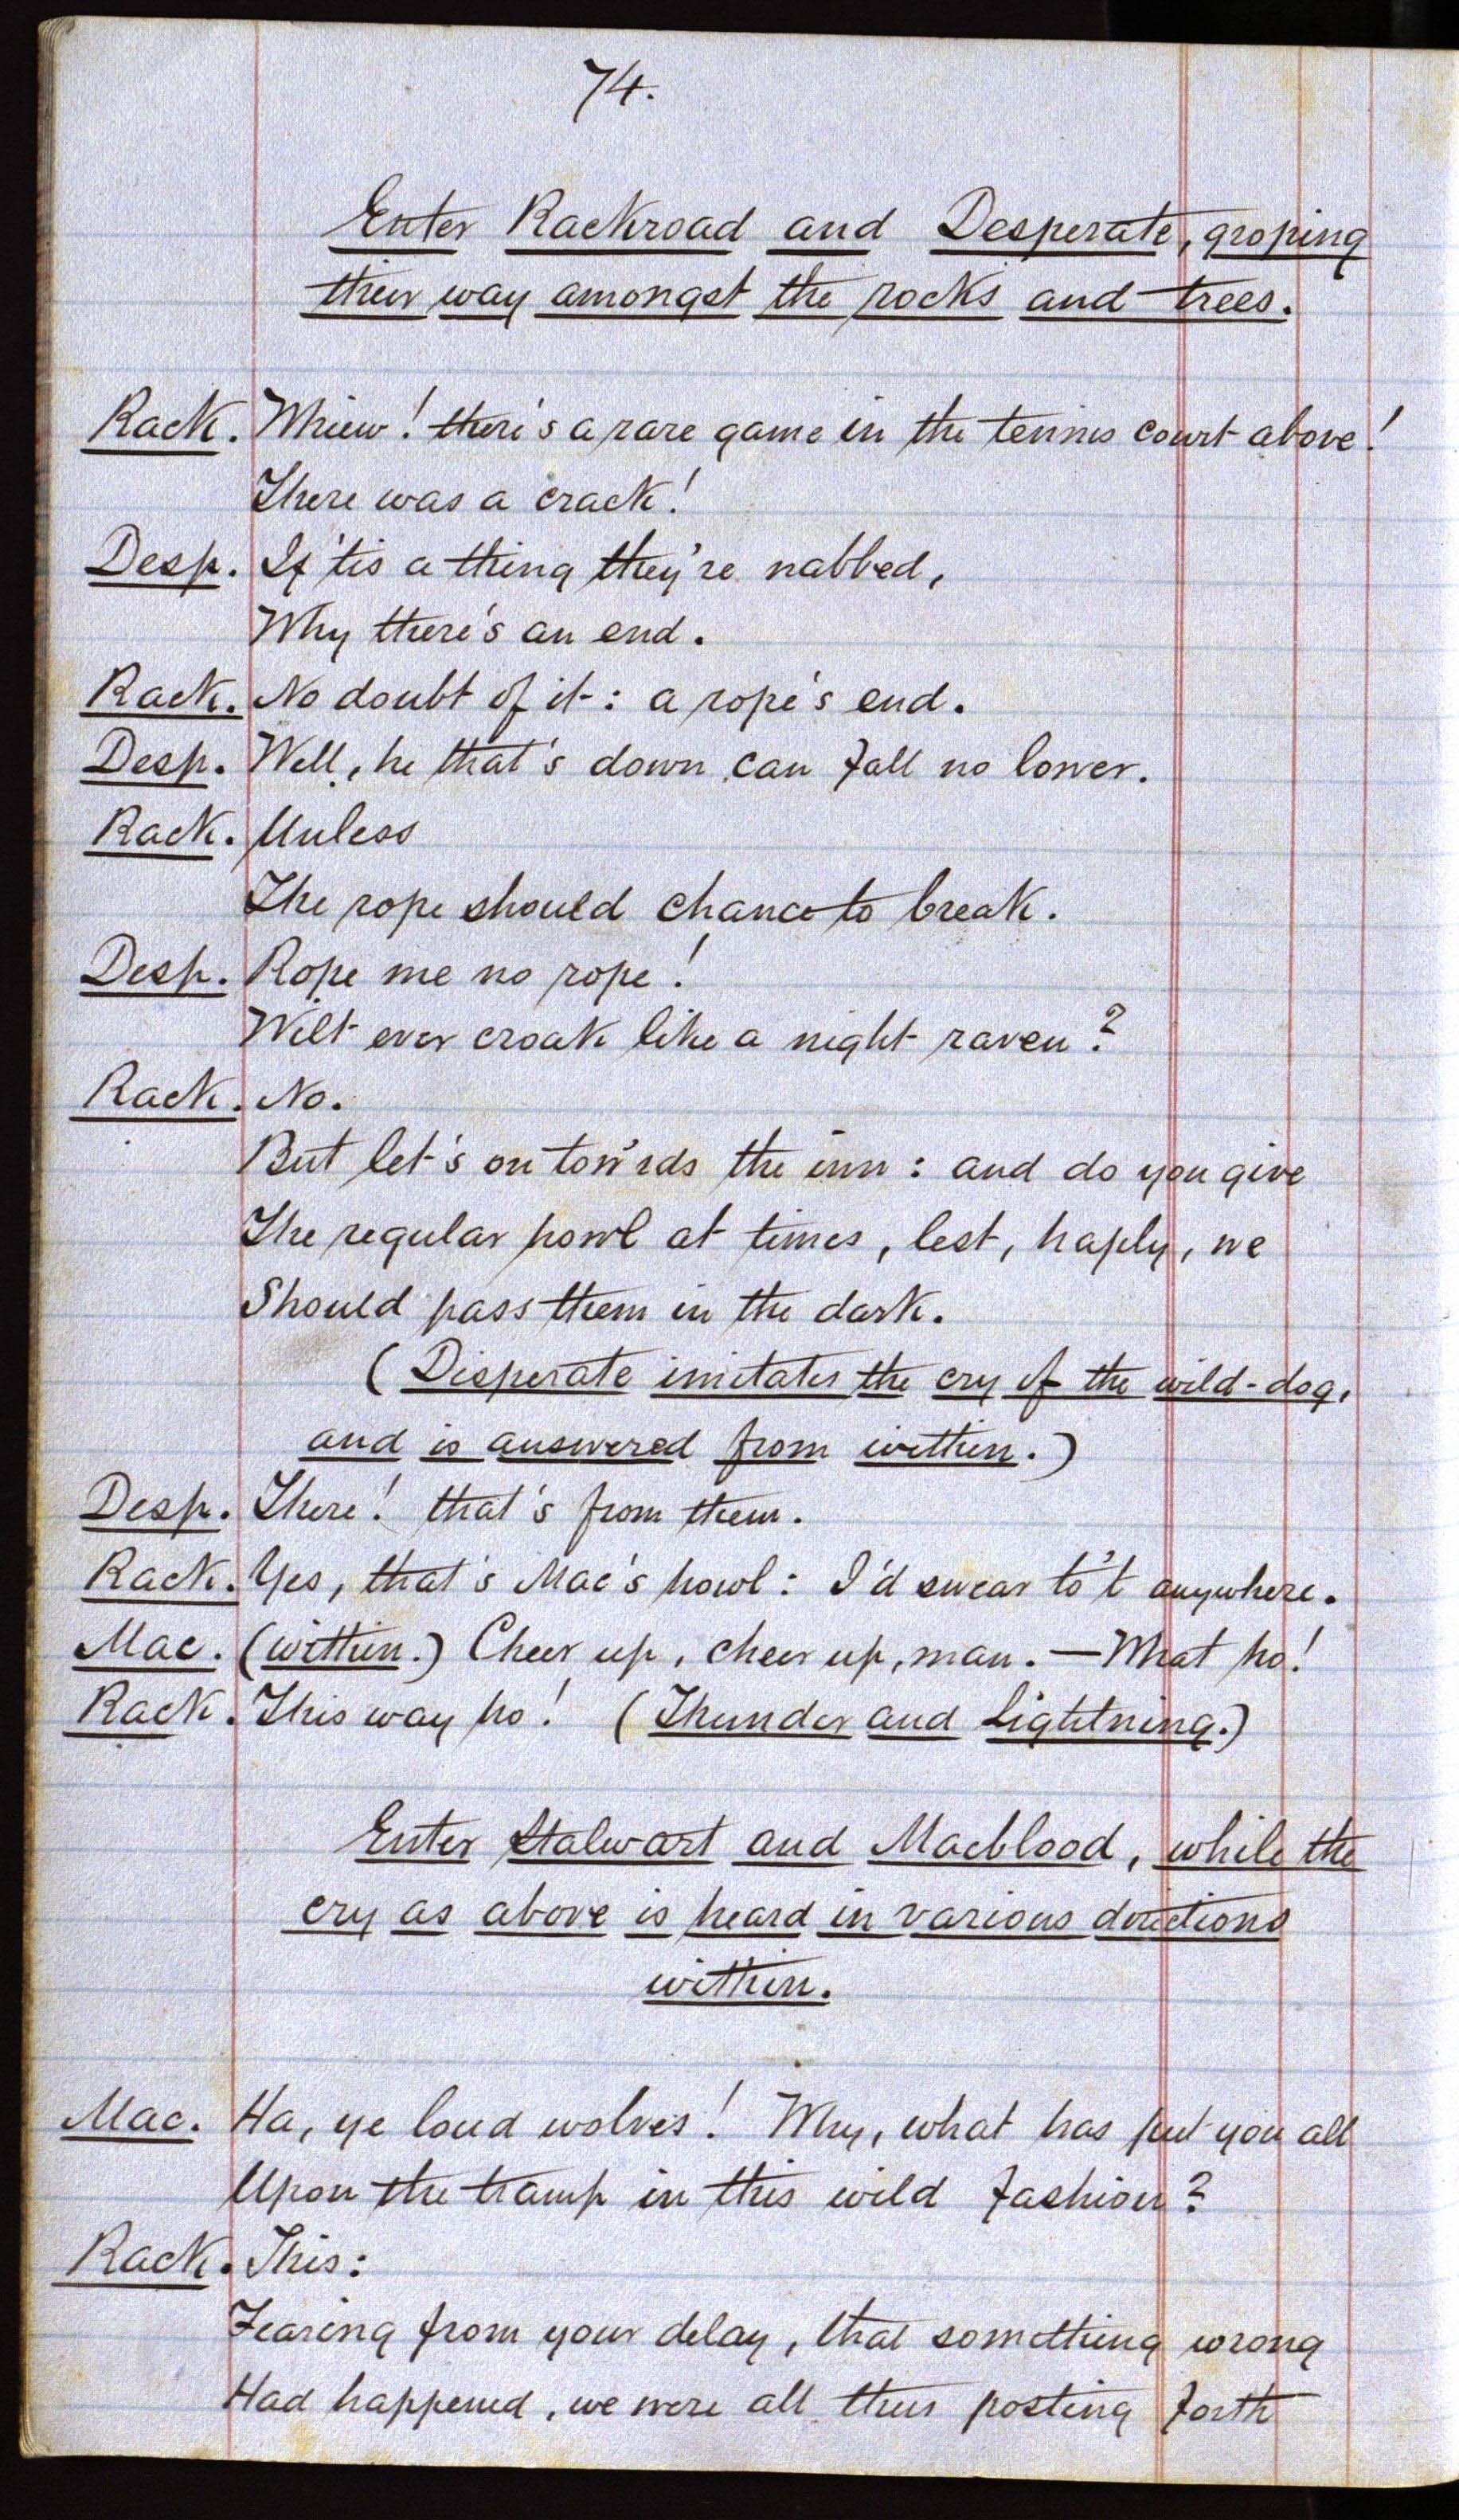 74.
Enter Rackroad and Desperate, groping
their way amongst the rocks and trees.
Rack. Whiew! there's a rare game in the tennis court above!
There was a crack!
Desp. If 'tis a thing they're nabbed,
Why there's an end.
Rack. No doubt of it: a rope's end.
Desp. Well, he that's down can fall no lower.
Rack. Unless
The rope should chance to break.
Desp. Rope me no rope!
Wilt ever croak like a night raven?
Rack. No.
But let's on tow'rds the inn: and do you give
The regular howl at times, lest, haply, we
Should pass them in the dark.
(Desperate imitates the cry of the wild-dog,
and is answered from within.)
Desp. There! that's from them.
Rack. Yes, that's Mac's howl: I'd swear to't anywhere.
Mac. (within.) Cheer up, cheer up, man. — What ho!
Rack. This way ho! (Thunder and Lightning.)
Enter Stalwart and Macblood, while the
cry as above is heard in various directions
within.
Mac. Ha, ye loud wolves! Why, what has put you all
Upon the tramp in this wild fashion?
Rack. This:
Fearing from your delay, that something wrong
Had happened, we were all thus posting forth